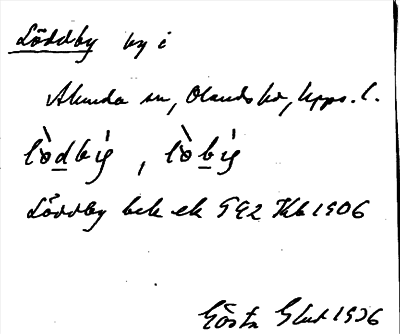 Löddby by i
Alunda sn, Olands hd, Upps. l.
lò̀dby̍, lò̀by̍
Löddby bek ek 592 Hkb 1906
Gösta 1936